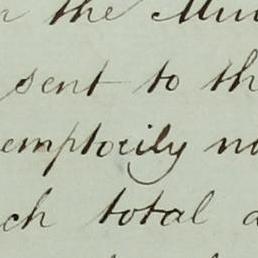 the Mu
sent to th
emptorily no
ch total a